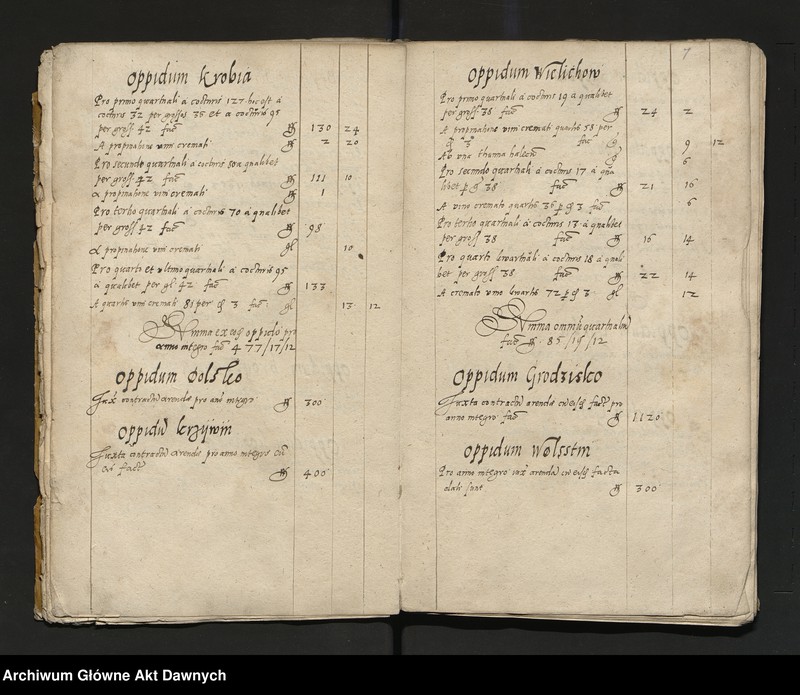 Oppidum Krobia
Pro primo quarthali a coctoris 127 hoc est a
coctoris 32 per grossos 35 et a coctoris 95
per gross 42 fac 130 24
A propinatione vini cremati 2 20
Pro secundo quarthali a coctoris 80 a qualibet
per gross 42 fac 111 10
A propinatione vini cremati 1
Pro tertio quarthali a coctoris 70 a qualibet
per gross 42 fac 98
A propinatione vini cremati gl 10
Pro quarto et ultimo quarthali a coctoris 95
a qualibet per gl 42 fac 133
A quartis vini cremati 81 per 3 fac gl 13 12
Summa ex eoq oppido pro
anno integro fac 477/17/12
Oppidum Dolsko
Juxta contractu arendae pro anno integro 300
Oppidu Krzywin
Juxta contractu arendae pro anno integro
fact 400
7
Oppidum Wielichow
Pro primo quarthali a coctoris 19 a qualibet
per gross 38 fac 24 2
A propinatione vini cremati quartis 58 per
3 fac 9 12
Ab una thunna halecu 6
Pro secundo quarthali a coctoris 17 a qua
libet p g 38 fac 21 16
A vino cremato quartis 36 p g 3 fac 6
Pro tertio quarthali a coctoris 13 a qualibet
per gross 38 fac 16 14
Pro quarto kwarthali a coctoris 18 a quali
bet per gross 38 fac 22 14
A cremato vino kwartis 72 p g 3 gl 12
Summa omniu quarthaliu
fac 85/15/12
Oppidum Grodzisko
Juxta contractu arendae fact pro
anno integro fac 1120
Oppidum Wolsstin
Pro anno integro iux arenda facta
dati sunt 300
Archiwum Główne Akt Dawnych